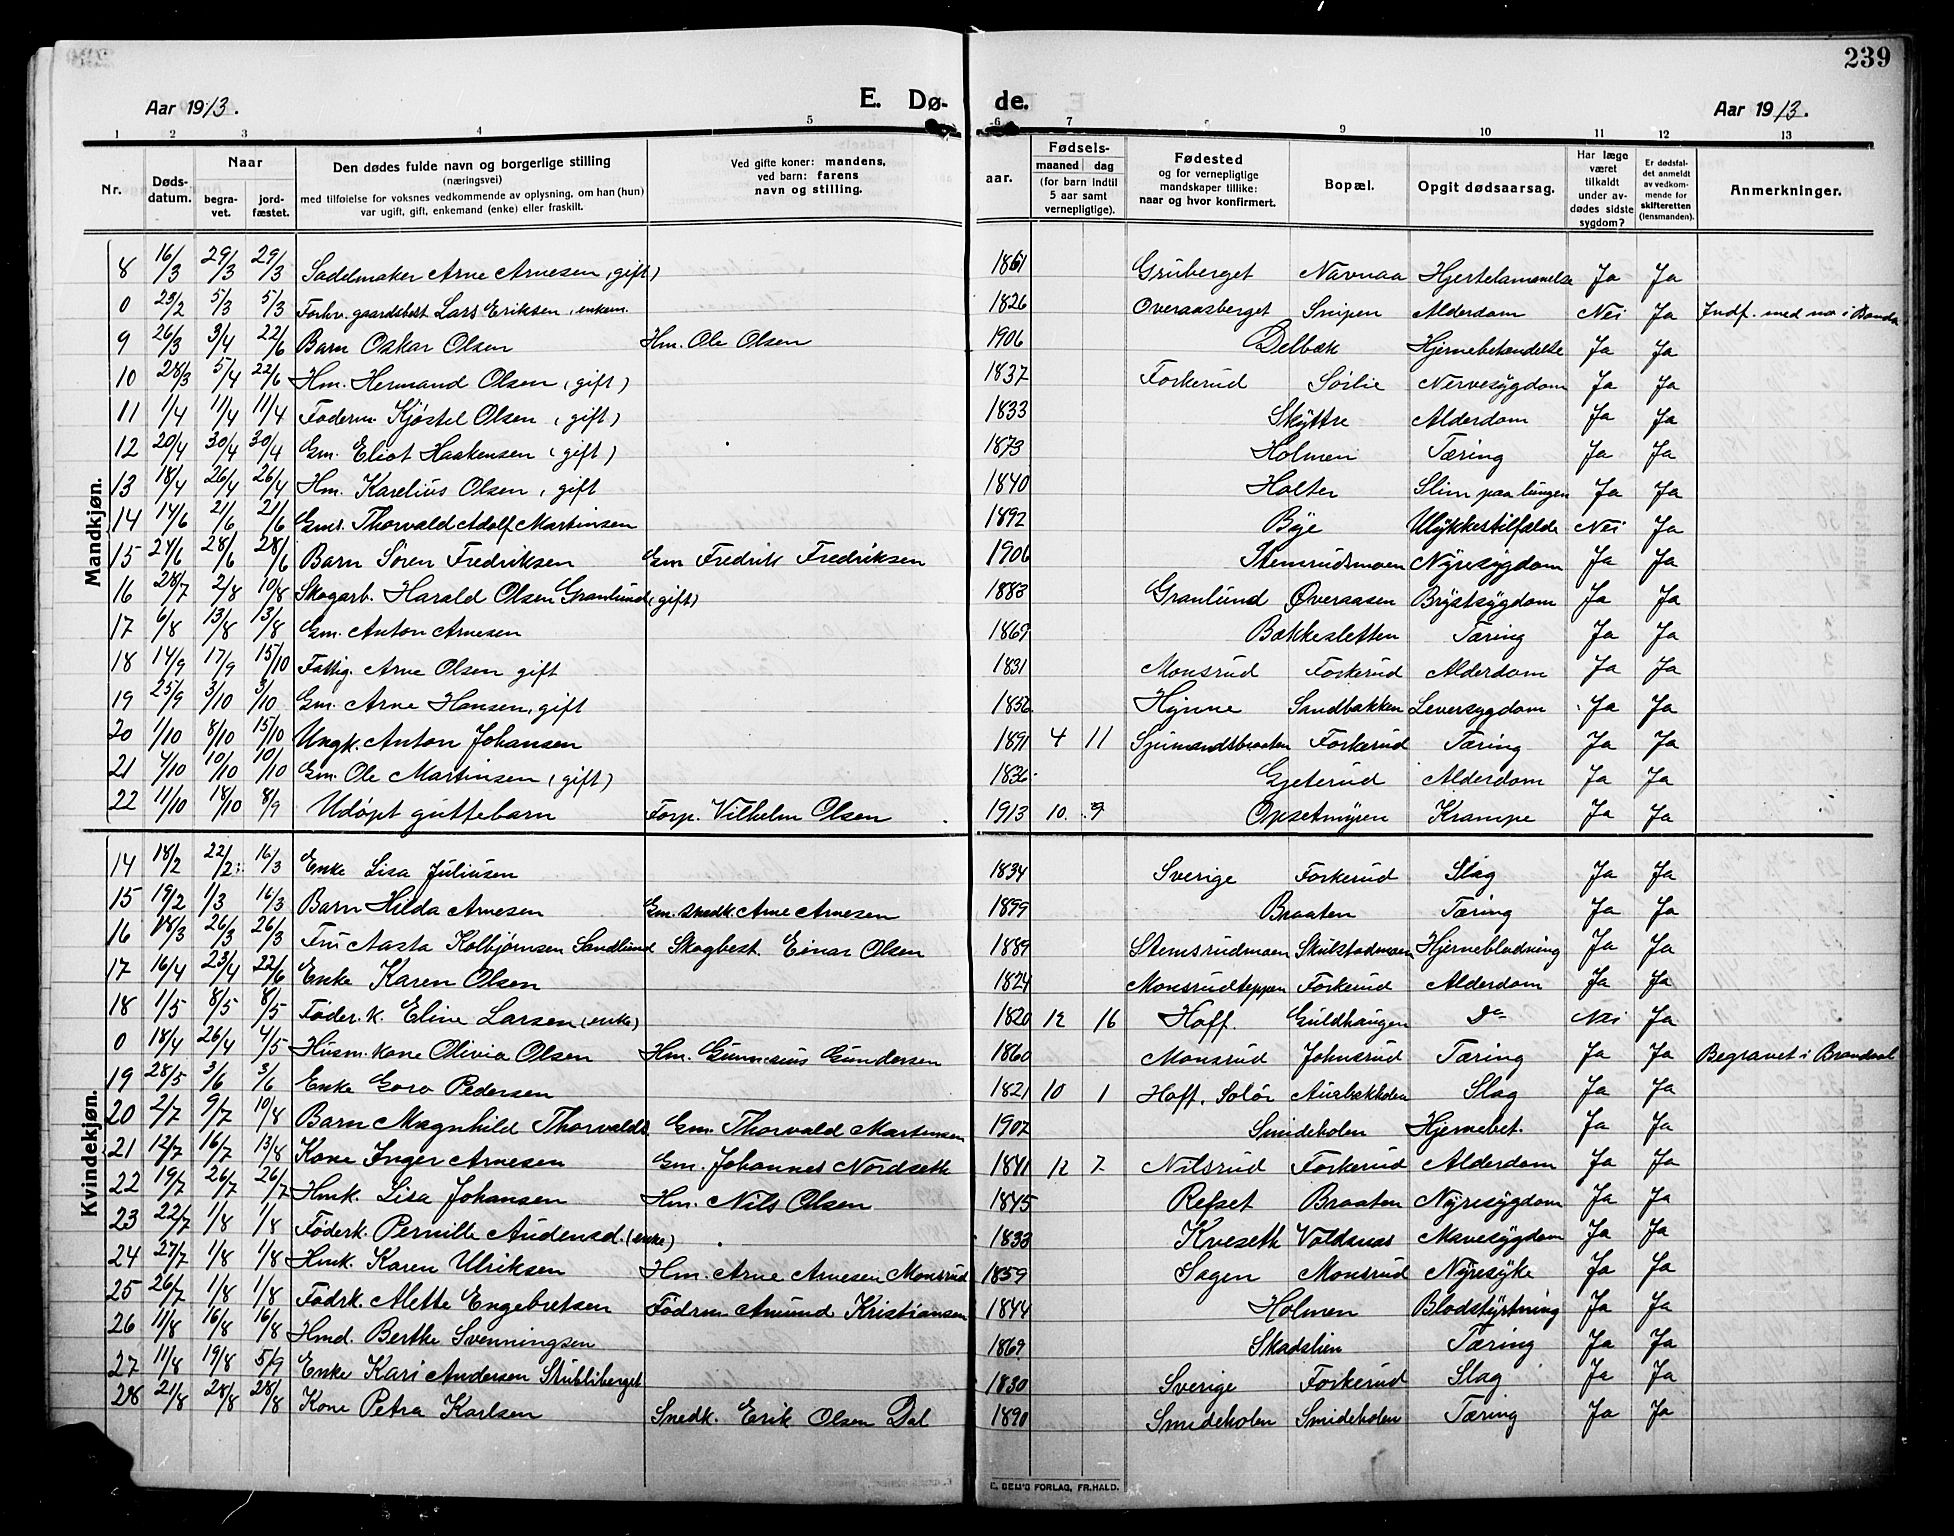 239
Aar 1913. E. Dø- de. Aar 1913.
1 2 3 4 5 6 7 8 9 10 11 12 13
Nr. Dødsdatum. Naar begravet. jordfæstet. Den dødes fulde navn og borgerlige stilling (næringsvei) med tilføielse for voksnes vedkommende av oplysning, om han (hun) var ugift, gift, enkemand (enke) eller fraskilt. Ved gifte koner: mandens, ved barn: farens navn og stilling. aar. Fødsels- maaned dag (for barn indtil 5 aar samt vernepligtige). Fødested og for vernepligtige mandskaper tillike: naar og hvor konfirmert. Bopæl. Opgit dødsaarsag. Har læge været tilkaldt under avdødes sidste sygdom? Er dødsfaldet anmeldt av vedkommende for skifteretten (lensmanden). Anmerkninger.
Mandkjøn.
8 16/3 29/3 29/3 Sadelmaker Arne Arnesen (gift) 1861 Gruberget Navnaa Hjertelammelse Ja Ja
0 23/2 5/3 5/3 Forhv. gaardsbest Lars Eriksen, enkem. 1826 Overaasberget Snipen Alderdom Nei Ja Indf. med no i
9 26/3 3/4 22/6 Barn Oskar Olsen Hm. Ole Olsen 1906 Delbæk Hjernebetændelse Ja Ja
10 28/3 5/4 22/6 Hm. Hermand Olsen (gift) 1837 Forkerud Sørlie Nervesygdom Ja Ja
11 1/4 11/4 11/4 Føderm. Kjøstel Olsen (gift) 1833 Skyttre Alderdom Ja Ja
12 20/4 30/4 30/4 Gm. Eliot Haakensen (gift) 1873 Holmen Tæring Ja Ja
13 18/4 26/4 26/4 Hm. Karelius Olsen, gift 1840 Holter Slim paa lungen Ja Ja
14 14/6 21/6 21/6 Gms. Thorvald Adolf Martinsen 1892 Bye Ulykkestilfælde Nei Ja
15 24/6 28/6 28/6 Barn Søren Fredriksen Gm Fredrik Fredriksen 1906 Stemsrudsmoen Nyresygdom Ja Ja
16 28/7 2/8 10/8 Skogarb. Harald Olsen Granlund (gift) 1883 Granlund Øveraasen Brystsygdom Ja Ja
17 6/8 13/8 13/8 Gm. Anton Arnesen 1869 Bækkesletten Tæring Ja Ja
18 14/9 17/9 15/10 Fattig. Arne Olsen gift 1831 Monsrud Forkerud Alderdom Ja Ja
19 25/9 3/10 3/10 Gm. Arne Hansen, gift 1832 Hynne Sandbakken Leversygdom Ja Ja
20 1/10 8/10 15/10 Ungk. Anton Johansen 1891 4 11 Sjumandsbraaten Forkerud Tæring Ja Ja
21 4/10 10/10 10/10 Gm. Ole Martinsen (gift) 1836 Gjeterud Alderdom Ja Ja
22 11/10 18/10 8/9 Udøpt guttebarn Forp. Vilhelm Olsen 1913 10. 9 Opsetmyren Krampe Ja Ja
Kvindekjøn.
14 18/2 22/2 16/3 Enke Lisa Juliusen 1834 Sverige Forkerud Slag Ja Ja
15 19/2 1/3 16/3 Barn Hilda Arnesen Gm. snedk. Arne Arnesen 1899 Braaten Tæring Ja Ja
16 18/3 26/3 26/3 Fru Aasta Kolbjørnsen Sandlund Skogbest. Einar Olsen 1889 Stemsrudmoen Skulstadmoen Hjerneblødning Ja Ja
17 16/4 23/4 22/6 Enke Karen Olsen 1824 Monsrudteppen Forkerud Alderdom Ja Ja
18 1/5 8/5 8/5 Føder.k. Eline Larsen (enke) 1820 12 16 Hoff. Guldhaugen Do Nei Ja
0 18/4 26/4 4/5 Husm. kone Olivia Olsen Hm. Gunnerius Gundersen 1860 Monsrud Johnsrud Tæring Ja Ja Begravet i Brandval
19 28/5 3/6 3/6 Enke Goro Pedersen 1821 10 1 Hoff. Solør Aurbækholen Slag Ja Ja
20 2/7 9/7 10/8 Barn Magnhild Thorvalds Gm. Thorvald Martinsen 1907 Smideholen Hjernebet. Ja Ja
21 12/7 16/7 13/8 Kone Inger Arnesen Gm. Johannes Nordseth 1841 12 7 Nilsrud Forkerud Alderdom Ja Ja
22 19/7 26/7 26/7 Hmk. Lisa Johansen Hm. Nils Olsen 1845 Refset Braaten Nyresygdom Ja Ja
23 22/7 1/8 1/8 Føderk. Pernille Audensd. (enke) 1833 Kveseth Voldsnæs Mavesygdom Ja Ja
24 27/7 1/8 1/8 Hmk. Karen Ulriksen Hm. Arne Arnesen Monsrud 1859 Sagen Monsrud Nyresyke Ja Ja
25 26/7 1/8 1/8 Fødrk. Alette Engebretsen Fødrm. Amund Kristiansen 1844 Holmen Blodstyrtning Ja Ja
26 11/8 16/8 16/8 Hmd. Berthe Svenningsen 1869 Skadslien Tæring Ja Ja
27 11/8 19/8 5/9 Enke Kari Andersen Stubliberget 1830 Sverige Forkerud Slag Ja Ja
28 21/8 28/8 28/8 Kone Petra Karlsen Snedk. Erik Olsen Dal 1890 Smideholen Smideholen Tæring Ja Ja
FORLAG, FR.HALD.